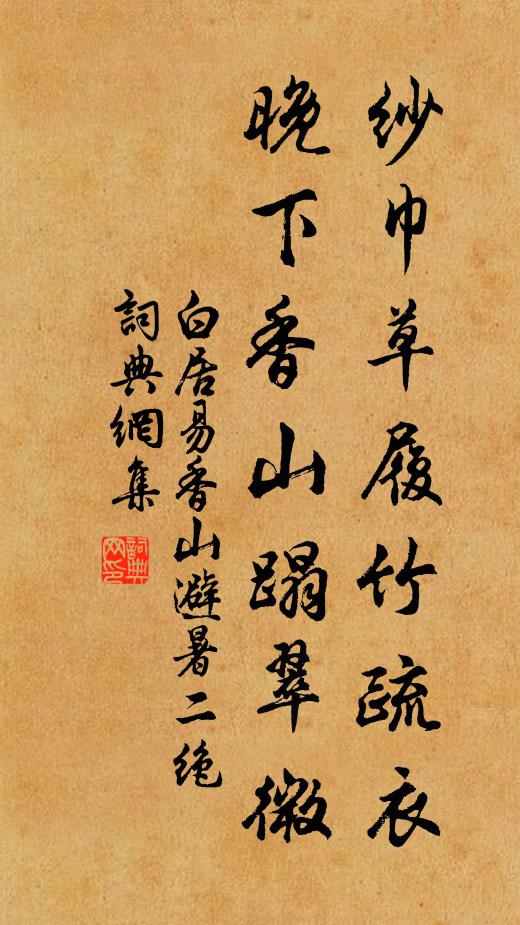 紗巾草履竹疏衣
晚下香山蹋翠微
白居易香山避暑二絶
詞典網集
詞典网印